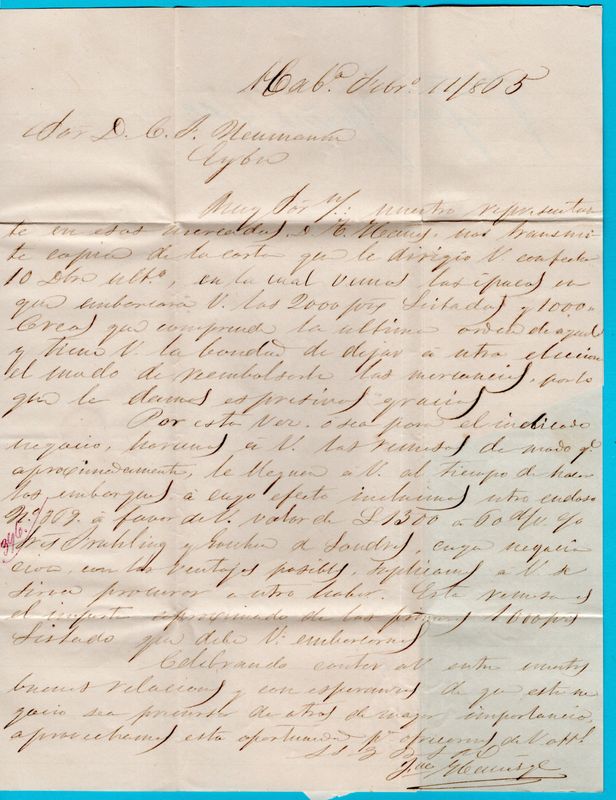 Hab.ª Febr.º 11/865
Sor D. C. F. Neumann
Eybau
Muy Sor n/: nuestro representan
te en esos mercados, D. E. nos transmi
te copia de la carta que le dirigio V. con fecha
10 Dbre ult.º, en la cual vemos las épocas en
que embarcará V. las 2000 pzs Listados y 1000 "
Creas que comprende la ultima orden de aquel
y tiene V. la bondad de dejar á ntra eleccion
el modo de reembolsarle las mercancias, por lo
que le damos espresivas gracias
Por esta vez, o sea para el indicado
negocio, haremos á V. las remesas de modo q.e
aproximadamente, le lleguen á V. al tiempo de hacer
los embarques á cuyo efecto incluimos ntro endoso
Nº 369. á favor de V. valor de £ 1300 á 60 d/v. c/o
396.
Fruhling y Goschen de Londres, cuya negocia
cion, con las ventajas posibles, suplicamos á V. se
sirva procurar a ntro haber. Esta remesa es
el importe aproximado de las primeras 1000 pzs
Listado que debe V. embarcarnos
Celebrando contar á V. entre nuestras
buenas relaciones y con esperanzas de que este ne
gocio sea precursor de otros de mayor importancia,
aprovechamos esta oportunidad p.ª ofrecernos de V. att.s
S. S. Q. B. S. M.